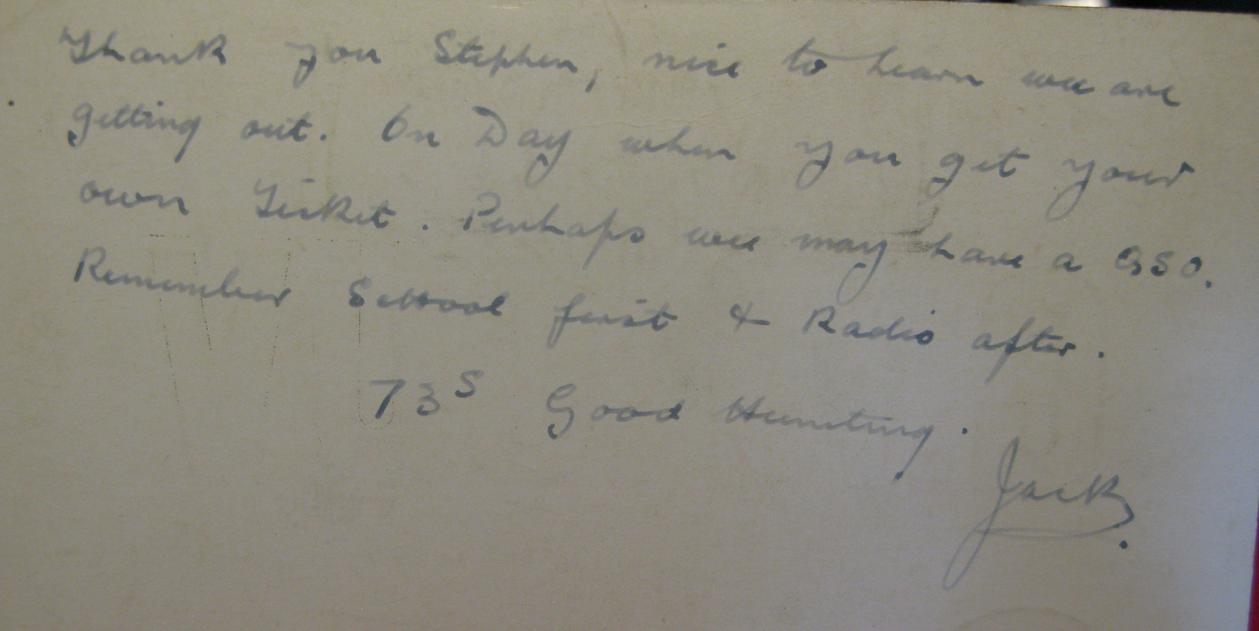 Thank you Stephen, nice to learn we are
getting out. On Day when you get your
own Ticket. Perhaps we may have a QSO.
Remember School first & Radio after.
73s Good Hunting.
Jack.